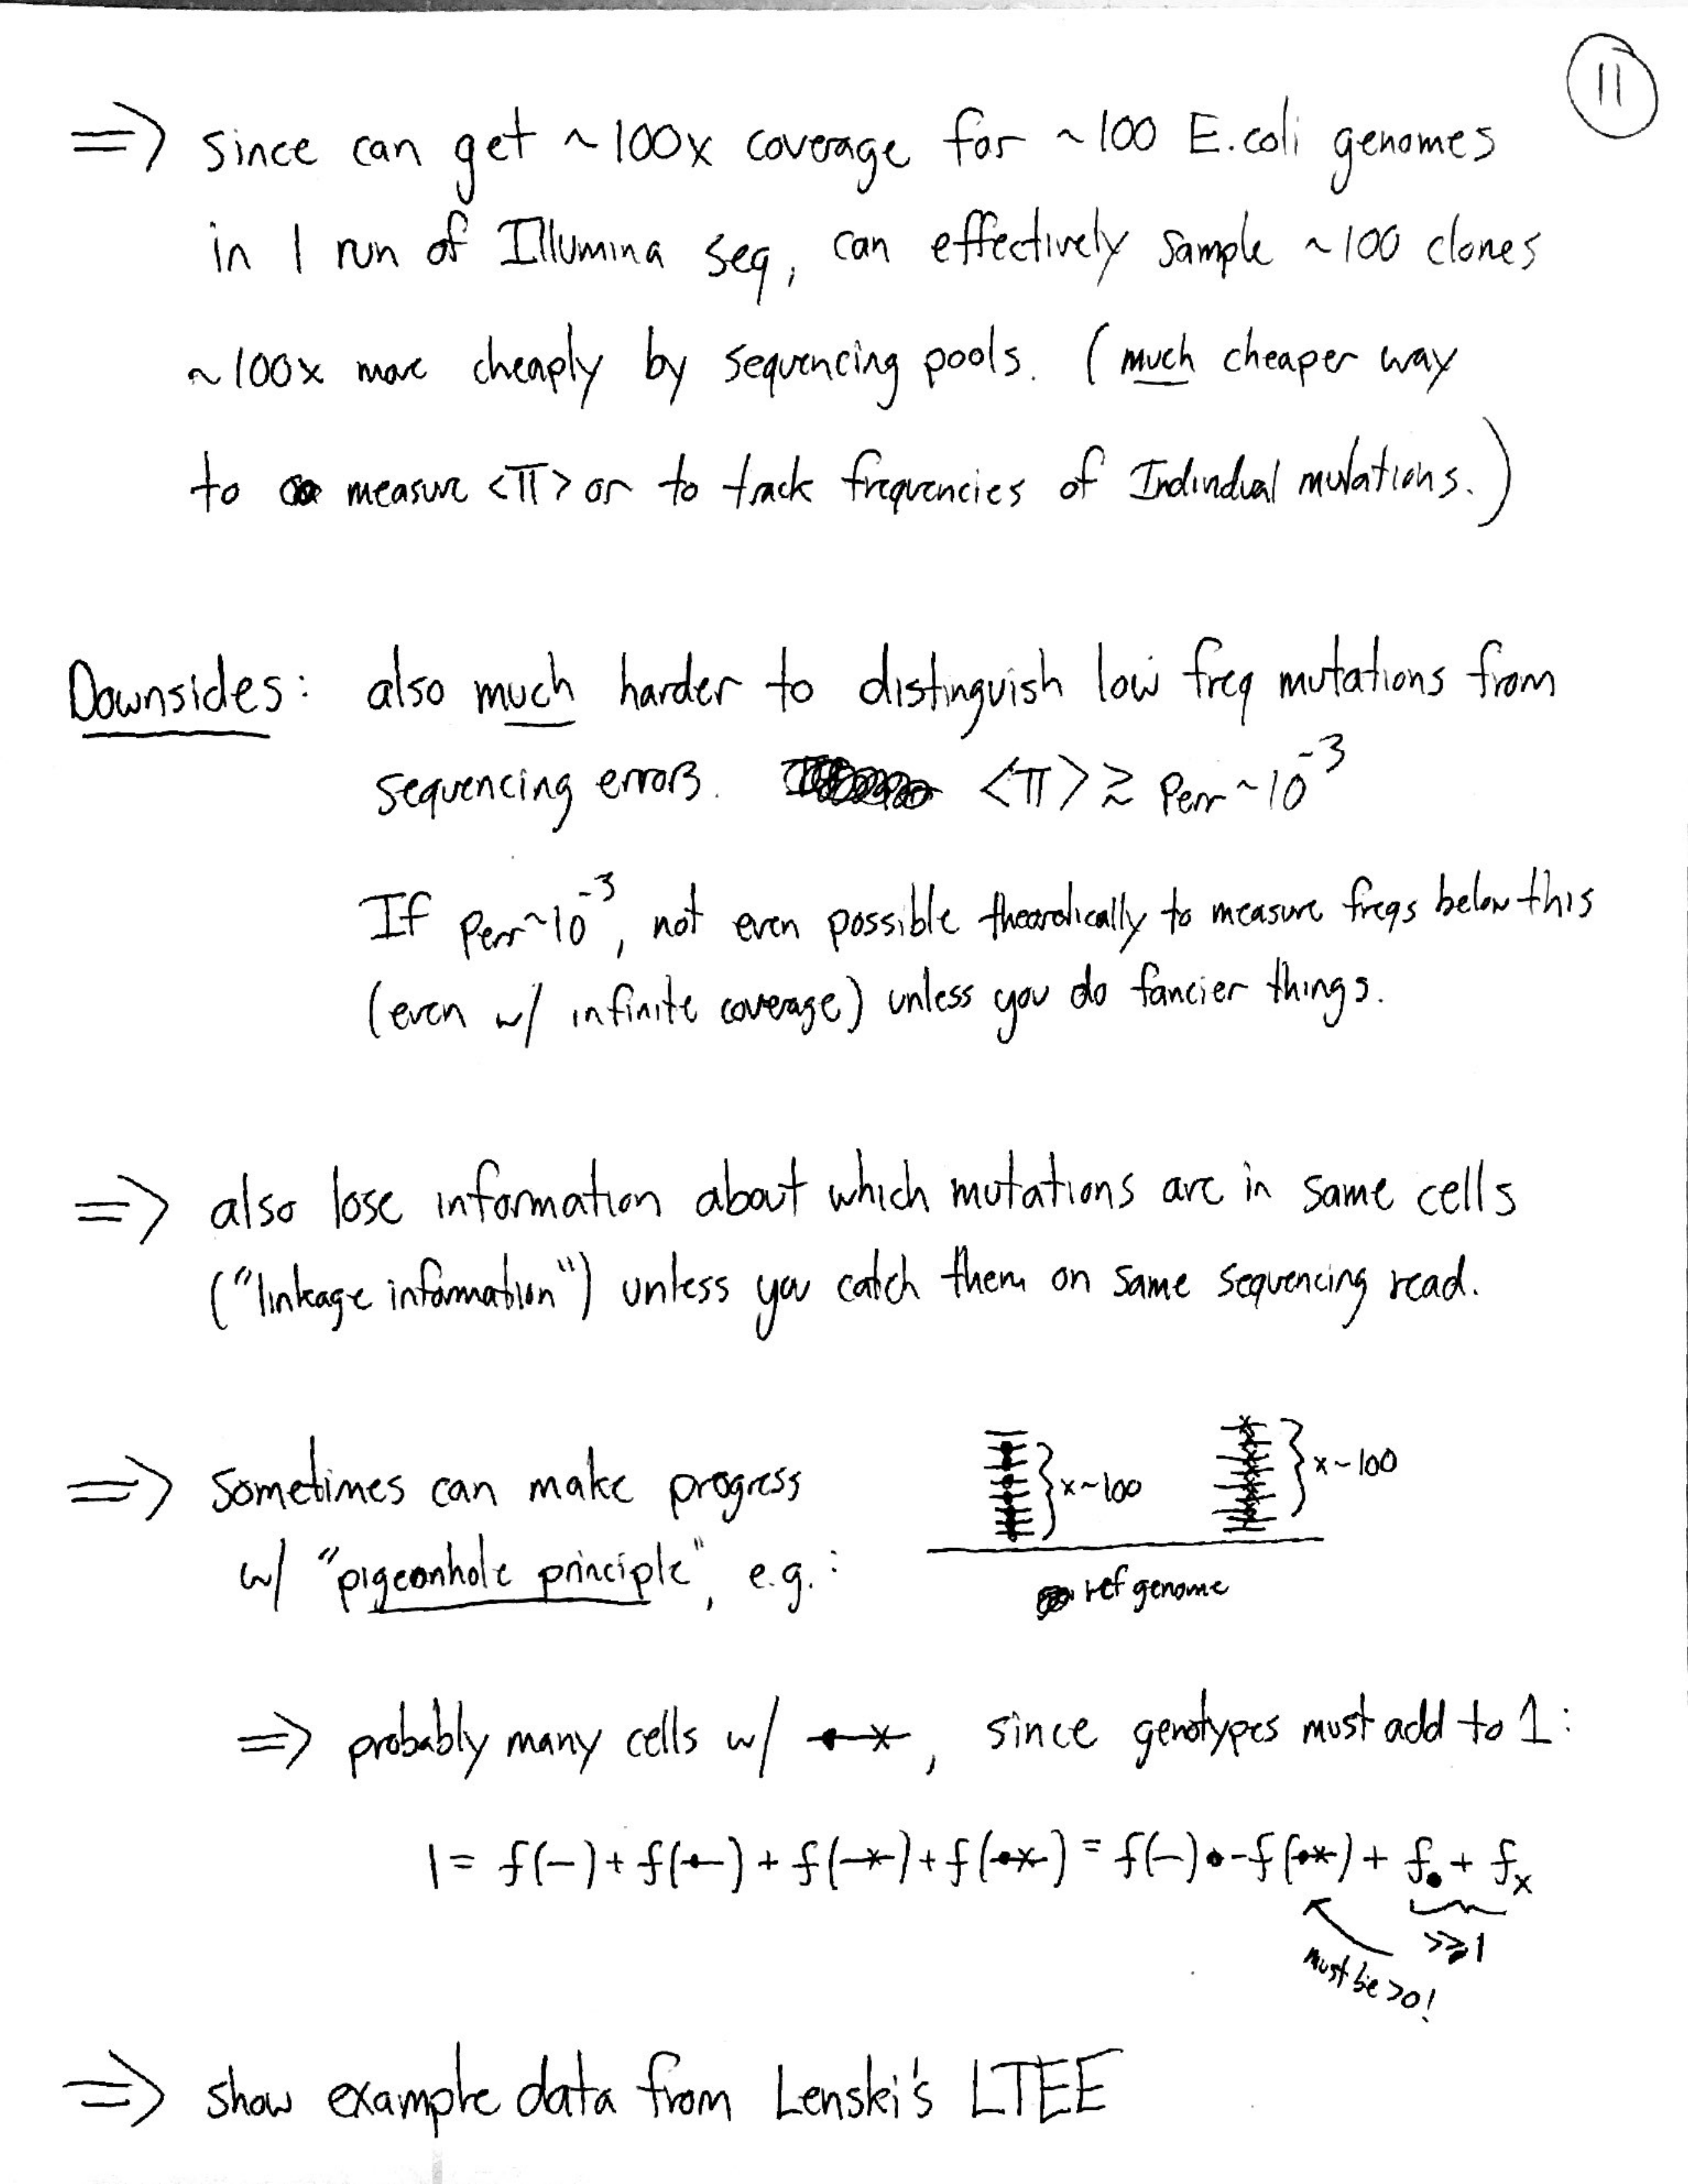 11
=> since can get ~100x coverage for ~100 E.coli genomes
in 1 run of Illumina seq, can effectively sample ~100 clones
~100x more cheaply by sequencing pools. (much cheaper way
to measure <π> or to track frequencies of Individual mutations.)
Downsides: also much harder to distinguish low freq mutations from
sequencing errors. <π> ≳ Perr ~ 10^-3
If Perr ~ 10^-3, not even possible theoretically to measure freqs below this
(even w/ infinite coverage) unless you do fancier things.
=> also lose information about which mutations are in same cells
("linkage information") unless you catch them on same sequencing read.
=> sometimes can make progress
w/ "pigeonhole principle", e.g.:
x~100 x~100
ref genome
=> probably many cells w/ •×, since genotypes must add to 1:
1 = f(—) + f(•—) + f(—×) + f(•×) = f(—) - f(•×) + f• + f×
>>1
must be >0!
=> show example data from Lenski's LTEE